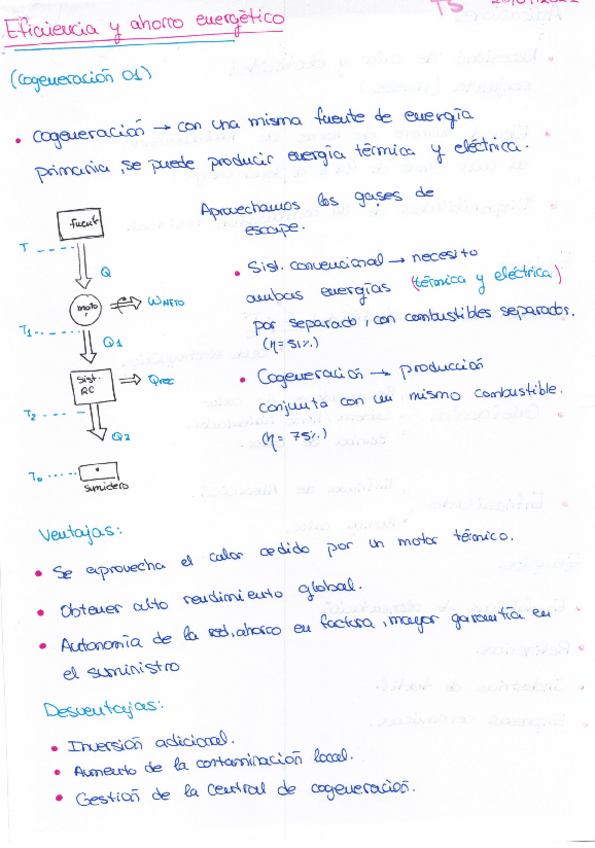 Eficiencia y ahorro energético
T5
(Cogeneración 01)
• cogeneración → con una misma fuente de energía
primaria, se puede producir energía térmica y eléctrica.
Aprovechamos los gases de
escape.
fuente
T
Q
motor
WNETO
T1
Q1
Sist. RC
Qrec
T2
Q2
To
sumidero
• Sist. convencional → necesito
ambas energías (térmica y eléctrica)
por separado, con combustibles separados.
(η = 51%)
• Cogeneración → producción
conjunta con un mismo combustible.
(η = 75%)
Ventajas:
• Se aprovecha el calor cedido por un motor térmico.
• Obtener alto rendimiento global.
• Autonomía de la red, ahorro en factura, mayor garantía en
el suministro
Desventajas:
• Inversión adicional.
• Aumento de la contaminación local.
• Gestión de la central de cogeneración.